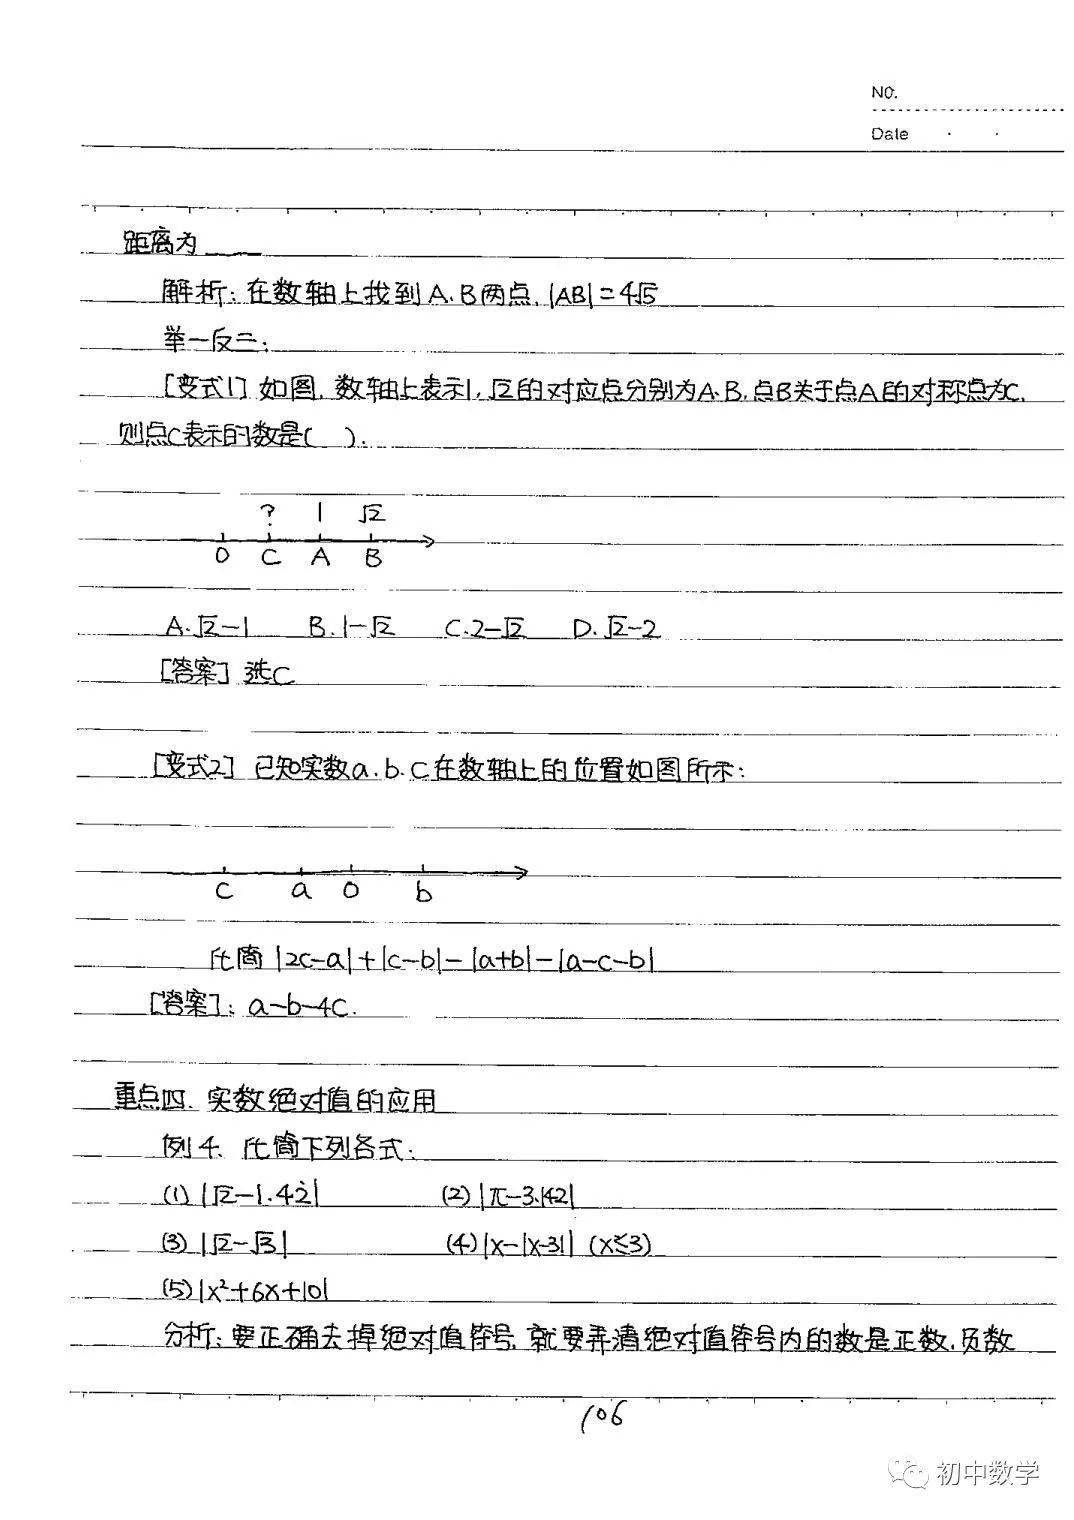 NO.
Date
距离为____
解析:在数轴上找到A.B两点,|AB|=4√5
举一反三:
[变式1] 如图,数轴上表示1,√2的对应点分别为A.B,点B关于点A的对称点为C,
则点C表示的数是( ).
? 1 √2
0 C A B
A.√2-1 B.1-√2 C.2-√2 D.√2-2
[答案] 选C
[变式2] 已知实数a.b.c在数轴上的位置如图所示:
c a 0 b
化简|2c-a|+|c-b|-|a+b|-|a-c-b|
[答案]:a-b-4c.
重点四.实数绝对值的应用
例4、化简下列各式:
(1)|√2-1.42| (2)|π-3.142|
(3)|√2-√3| (4)|x-|x-3|| (x≤3)
(5)|x²+6x+10|
分析:要正确去掉绝对值符号,就要弄清绝对值符号内的数是正数,负数
106
初中数学